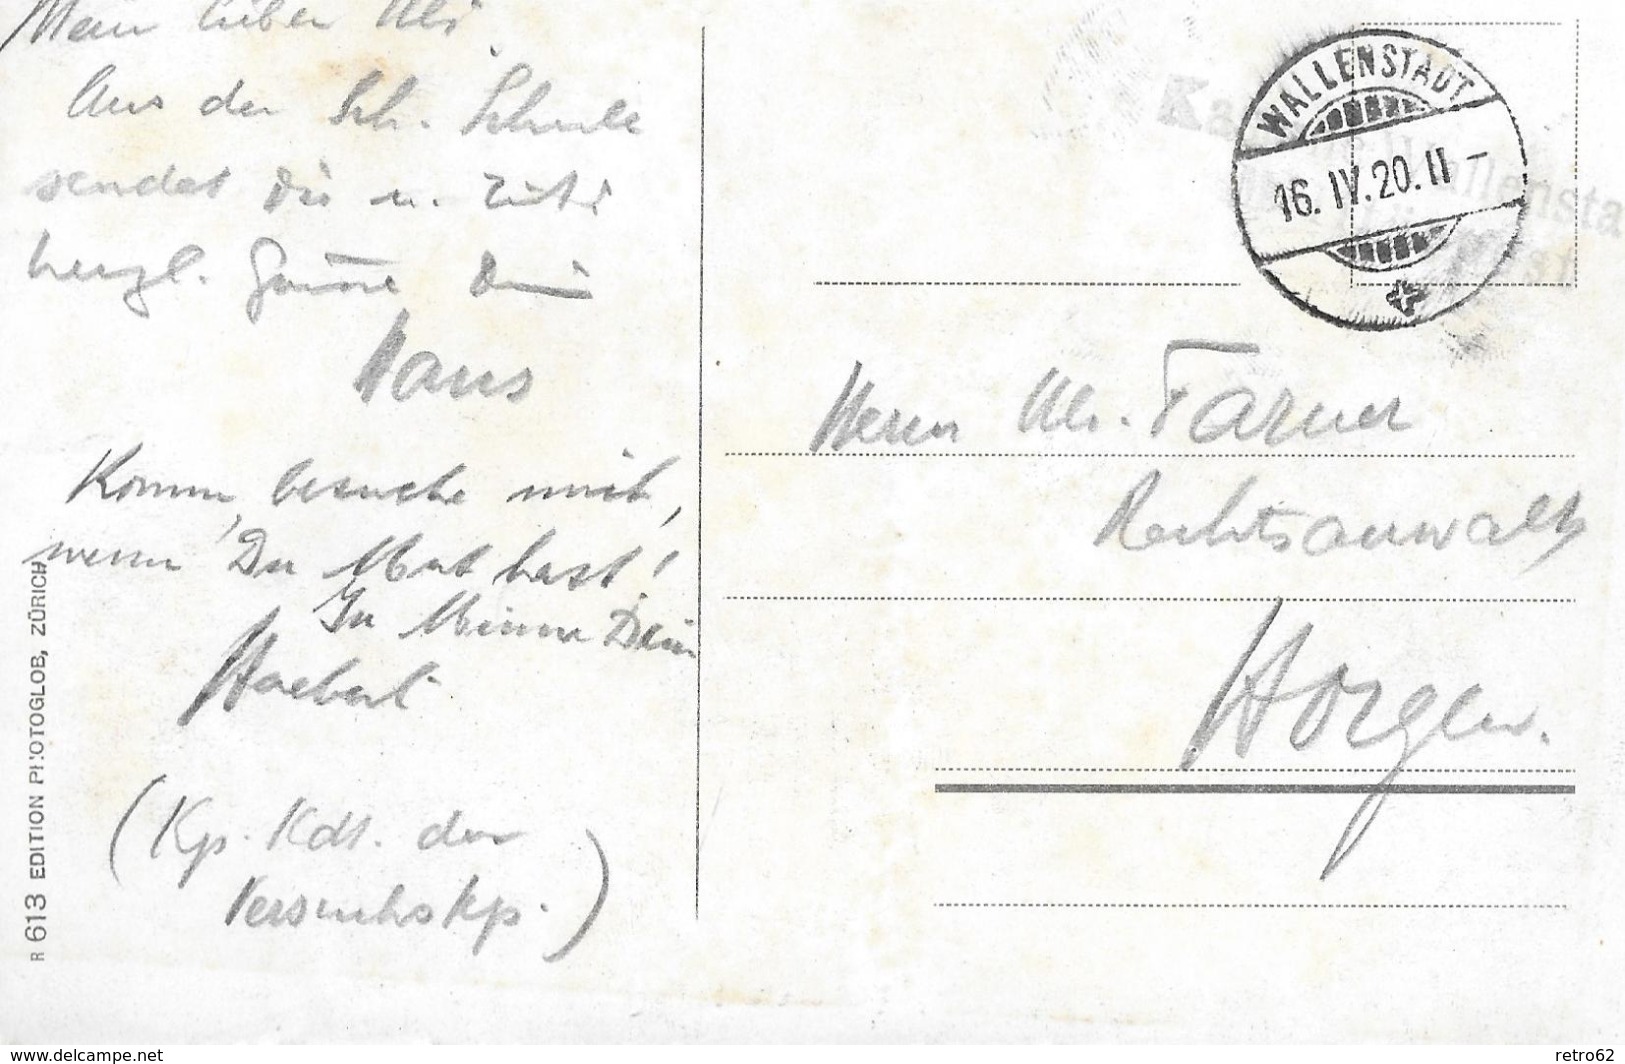 Mein lieber Uli
Aus der Sch. Schule
sendet Dir u.
herzl. Grüsse Dein
Hans
Komm, besuche mich,
wenn Du Mut hast!
In Minne Dein
(Kp. Kdt. der
Versuchskp.)
R 613 EDITION PHOTOGLOB, ZÜRICH
WALLENSTADT
16. IV. 20. II –
Herrn Ulr. Farner
Rechtsanwalt
Horgen.
www.delcampe.net
retro62